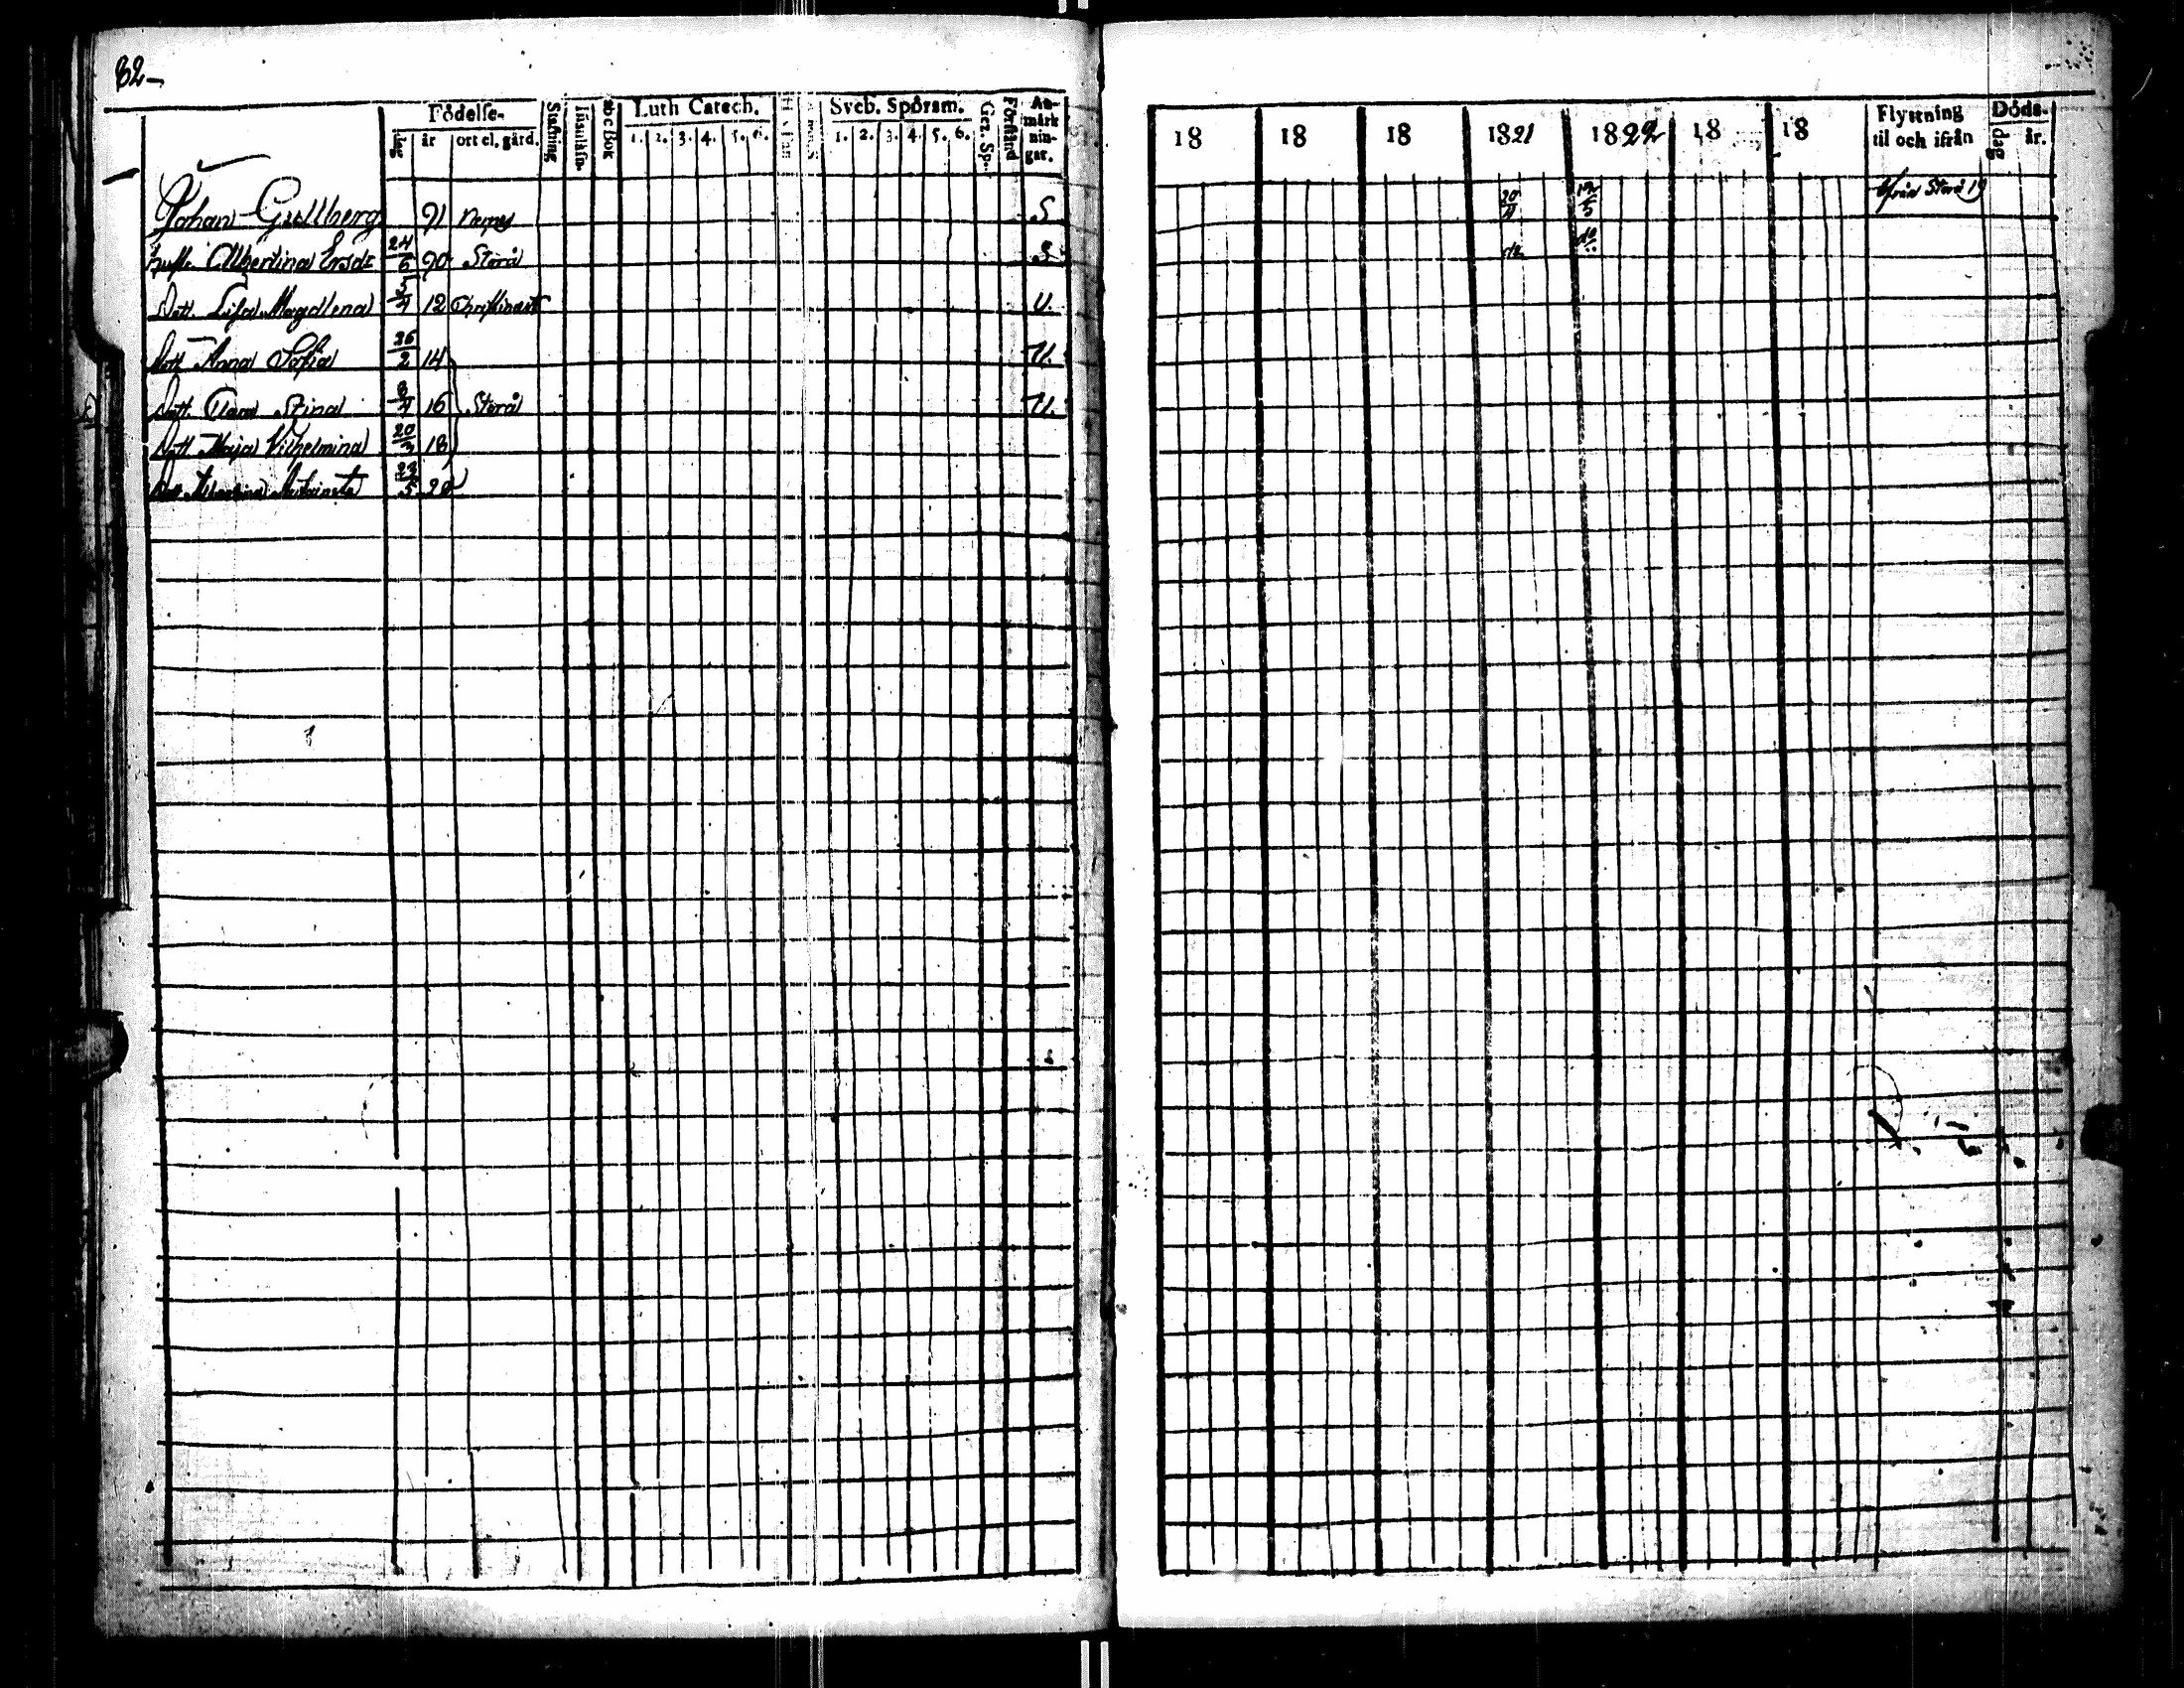 82-
Födelse- Luth Catech. Sveb. Spörsm. An-
märk
nin-
gar.
dag år ort el. gård. Stafning Innanläsn. abc Bok 1. 2. 3. 4. 5. 6. 1. 2. 3. 4. 5. 6. Gez. Sp. Förstånd
18 18 18 1821 1822 18 18 Flyttning
til och ifrån Döds-
dag år.
Johan Gullberg 91 Nerpes S 20/4 12/5 ifrån Storå 19
hust. Albertina Ersdr 24/6 90 Storå S do do
Dott. Lisa Magdlena 5/4 12 U.
Dott Anna Sofia 26/2 14 U.
Dott. Clara Stina 8/4 16 Storå U.
Dott Maja Vilhelmina 20/3 18
Dott Albertina 20